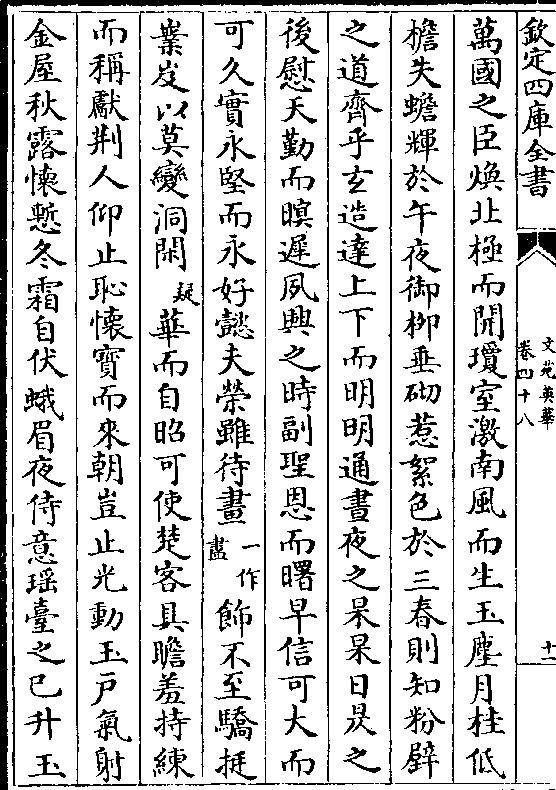 欽定四庫全書
文苑英華
卷四十八
十一
萬國之臣煥北極而開瓊室激南風而生玉塵月桂低
檐失蟾輝於午夜御栁垂砌惹絮色於三春則知粉壁
之道齊乎玄造達上下而明明通晝夜之杲杲日昃之
後慰天勤而暝遲夙興之時副聖恩而曙早信可大而
可久實永堅而永好懿夫榮雖待畫一作盡飾不至驕挺
業岌以莫變洞閑疑華而自昭可使楚客具瞻羞持練
而稱獻荆人仰止恥懷寳而來朝豈止光動玉戸氣射
金屋秋露懐慙冬霜自伏蛾眉夜侍意瑶臺之已升玉